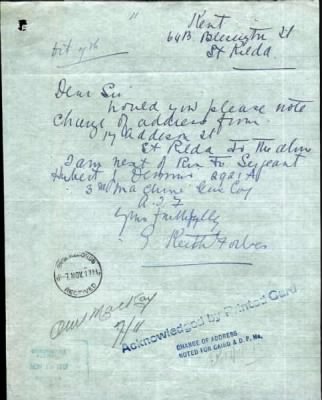 Kent
64B Blessington St
St Kilda
Dear Sir
Would you please note
change of address from
17 Addison St
St Kilda to the above
I am next of Kin to Sergeant
Hubert
3rd Machine Gun Coy
A.I.F
Yours faithfully
Keith Forbes
7 NOV 1917
RECEIVED
7/11
Acknowledged by Printed Card
CHANGE OF ADDRESS
NOTED FOR CARDS & D. P. Ms.